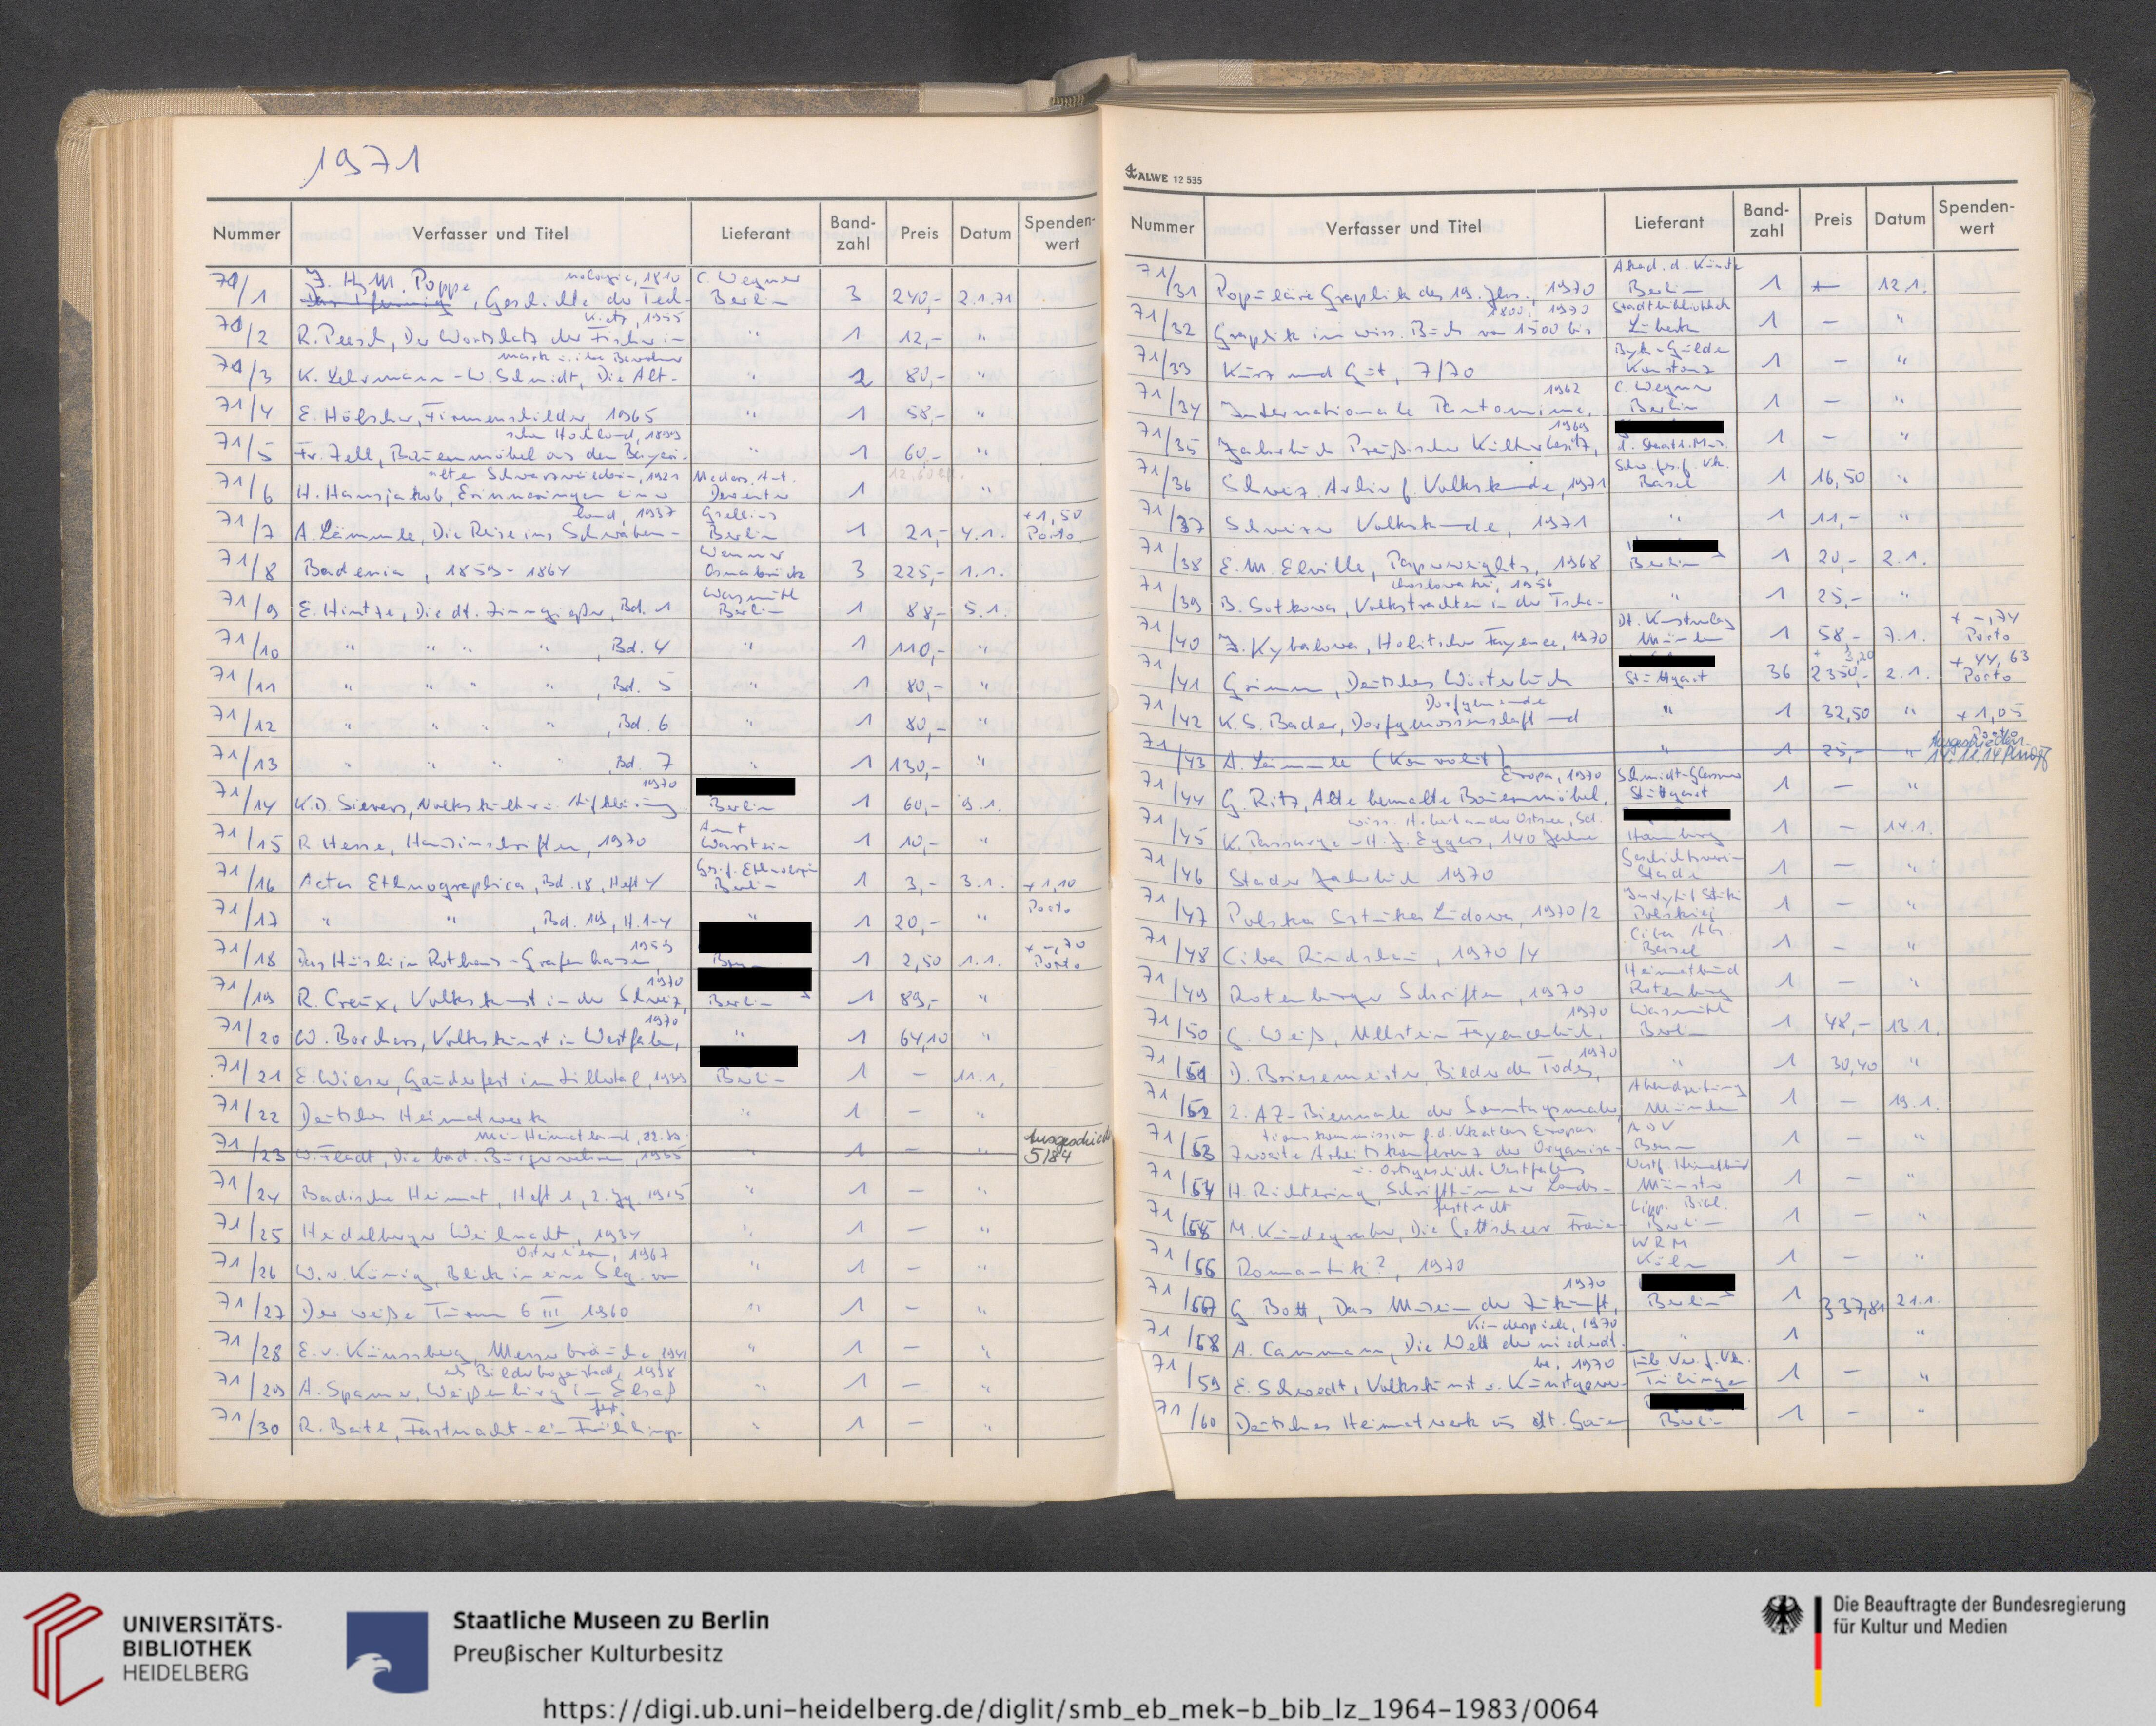 1971
Nummer Verfasser und Titel Lieferant Band-zahl Preis Datum Spenden-wert
71/1 J. H. M. Poppe, Geschichte der Technologie, 1810 C. Wegner Berlin 3 240,- 2.1.71
71/2 R. Peesch, Der Wortschatz der Fischer im Kietz, 1955 " 1 12,- "
71/3 K. Lehrmann - W. Schmidt, Die Altmark u. ihre Bewohner " 2 80,- "
71/4 E. Hölscher, Firmenschilder, 1965 " 1 58,- "
71/5 Fr. Zell, Bauernmöbel aus dem Bayerischen Hochland, 1899 " 1 60,- "
71/6 H. Hansjakob, Erinnerungen einer alten Schwarzwälderin, 1921 Deventer 1 "
71/7 A. Lämmle, Die Reise ins Schwabenland, 1937 Gsellius Berlin 1 21,- 4.1. +1,50 Porto
71/8 Badenia, 1859-1864 Wenner Osnabrück 3 225,- 1.1.
71/9 E. Hintze, Die dt. Zinngießer, Bd. 1 Wasmuth Berlin 1 88,- 5.1.
71/10 " " " " , Bd. 4 " 1 110,- "
71/11 " " " " , Bd. 5 " 1 80,- "
71/12 " " " " , Bd. 6 " 1 80,- "
71/13 " " " " , Bd. 7 " 1 130,- "
71/14 K.D. Sievers, Volkskultur u. Aufklärung 1970 Berlin 1 60,- 9.1.
71/15 R. Hesse, Hausinschriften, 1970 Amt Warstein 1 10,- "
71/16 Acta Ethnographica, Bd. 18, Heft 4 Ges. f. Ethnologie Berlin 1 3,- 3.1. +1,10
71/17 " " , Bd. 19, H. 1-4 " 1 20,- " Porto
71/18 Das Hüsli in Rothaus-Grafenhausen 1959 1 2,50 1.1. +-,70 Porto
71/19 R. Creux, Volkskunst in der Schweiz, 1970 Berlin 1 89,- "
71/20 W. Borchers, Volkskunst in Westfalen, 1970 " 1 64,10 "
71/21 E. Wieser, Gauderfest im Zillertal, 1939 Berlin 1 – 11.1.
71/22 Deutsches Heimatwerk " 1 – "
71/23 W. Fladt, Die bad. Bürgerwehren, 1935 Mein Heimatland, 22. Jg. " 1 – " Ausgeschieden 5/84
71/24 Badische Heimat, Heft 1, 2. Jg. 1915 " 1 – "
71/25 Heidelberger Weihnacht, 1934 " 1 – "
71/26 W. v. König, Blick in eine Slg. von Ostereiern, 1967 " 1 – "
71/27 Der weiße Turm 6 III 1960 " 1 – "
71/28 E. v. Künssberg, Messerbräuche 1941 " 1 – "
71/29 A. Spamer, Weißenburg im Elsaß als Bilderbogenstadt, 1938 " 1 – "
71/30 R. Beitl, Fastnacht - ein Frühlingsfest. " 1 – "
ALWE 12 535
Nummer Verfasser und Titel Lieferant Band-zahl Preis Datum Spenden-wert
71/31 Populäre Graphik des 19. Jhs., 1970 Akad. d. Künste Berlin 1 – 12.1.
71/32 Graphik im wiss. Buch von 1500 bis 1800, 1970 Stadtbibliothek Lübeck 1 – "
71/33 Kurz und Gut, 7/70 Byk-Gulden Konstanz 1 – "
71/34 Internationale Pantomime, 1962 C. Wegner Berlin 1 – "
71/35 Jahrbuch Preußischer Kulturbesitz, 1969 d. Staatl. Mus. 1 – "
71/36 Schweiz. Archiv f. Volkskunde, 1971 Schw. Ges. f. Vk. Basel 1 16,50 "
71/37 Schweizer Volkskunde, 1971 " 1 11,- "
71/38 E. M. Elville, Paperweights, 1968 Berlin 1 20,- 2.1.
71/39 B. Sotkova, Volkstrachten in der Tschechoslowakei, 1956 " 1 25,- "
71/40 J. Kybalova, Holitscher Fayence, 1970 Dt. Kunstverlag München 1 58,- 7.1. + -,74 Porto
71/41 Grimm, Deutsches Wörterbuch Stuttgart 36 2350,- + 3,20 2.1. + 44,63 Porto
71/42 K. S. Bader, Dorfgenossenschaft und Dorfgemeinde " 1 32,50 " +1,05 Porto
71/43 A. Lämmle (Konvolut) " 1 25,- " Ausgeschieden
71/44 G. Ritz, Alte bemalte Bauernmöbel, Europa, 1970 Stuttgart 1 – "
71/45 K. Passarge - H. J. Eggers, 140 Jahre Hamburg 1 – 14.1.
71/46 Stader Jahrbuch 1970 Geschichtsverein Stade 1 – "
71/47 Polska Sztuka Ludowa, 1970/2 1 – "
71/48 Ciba Rundschau, 1970/4 Ciba AG. Basel 1 – "
71/49 Rotenburger Schriften, 1970 Heimatbund Rotenburg 1 – "
71/50 G. Weiß, Ullstein Fayencenbuch, 1970 Wasmuth Berlin 1 48,- 13.1.
71/51 D. Briesemeister, Bilder des Todes, 1970 " 1 30,40 "
71/52 2. AZ-Biennale der Sonntagsmaler Abendzeitung München 1 – 19.1.
71/53 Zweite Arbeitskonferenz der Organisationskommission f. d. Vkatlas Europas ADV Bonn 1 – "
71/54 H. Richtering, Schrifttum zur Landes- u. Ortsgeschichte Westfalens Westf. Heimatbund Münster 1 – "
71/55 M. Kundegraber, Die Gottscheer Frauenfesttracht Lipp. Bibl. 1 – "
71/56 Romantik?, 1970 WRM Köln 1 – "
71/57 G. Bott, Das Museum der Zukunft, 1970 Berlin 1 337,81 21.1.
71/58 A. Cammann, Die Welt der niederdt. Kinderspiele, 1970 " 1 "
71/59 E. Schwedt, Volkskunst u. Kunstgewerbe, 1970 Tüb. Ver. f. Vk. Tübingen 1 – "
71/60 Deutsches Heimatwerk Berlin 1 – "
UNIVERSITÄTS-
BIBLIOTHEK
HEIDELBERG
Staatliche Museen zu Berlin
Preußischer Kulturbesitz
Die Beauftragte der Bundesregierung
für Kultur und Medien
https://digi.ub.uni-heidelberg.de/diglit/smb_eb_mek-b_bib_lz_1964-1983/0064